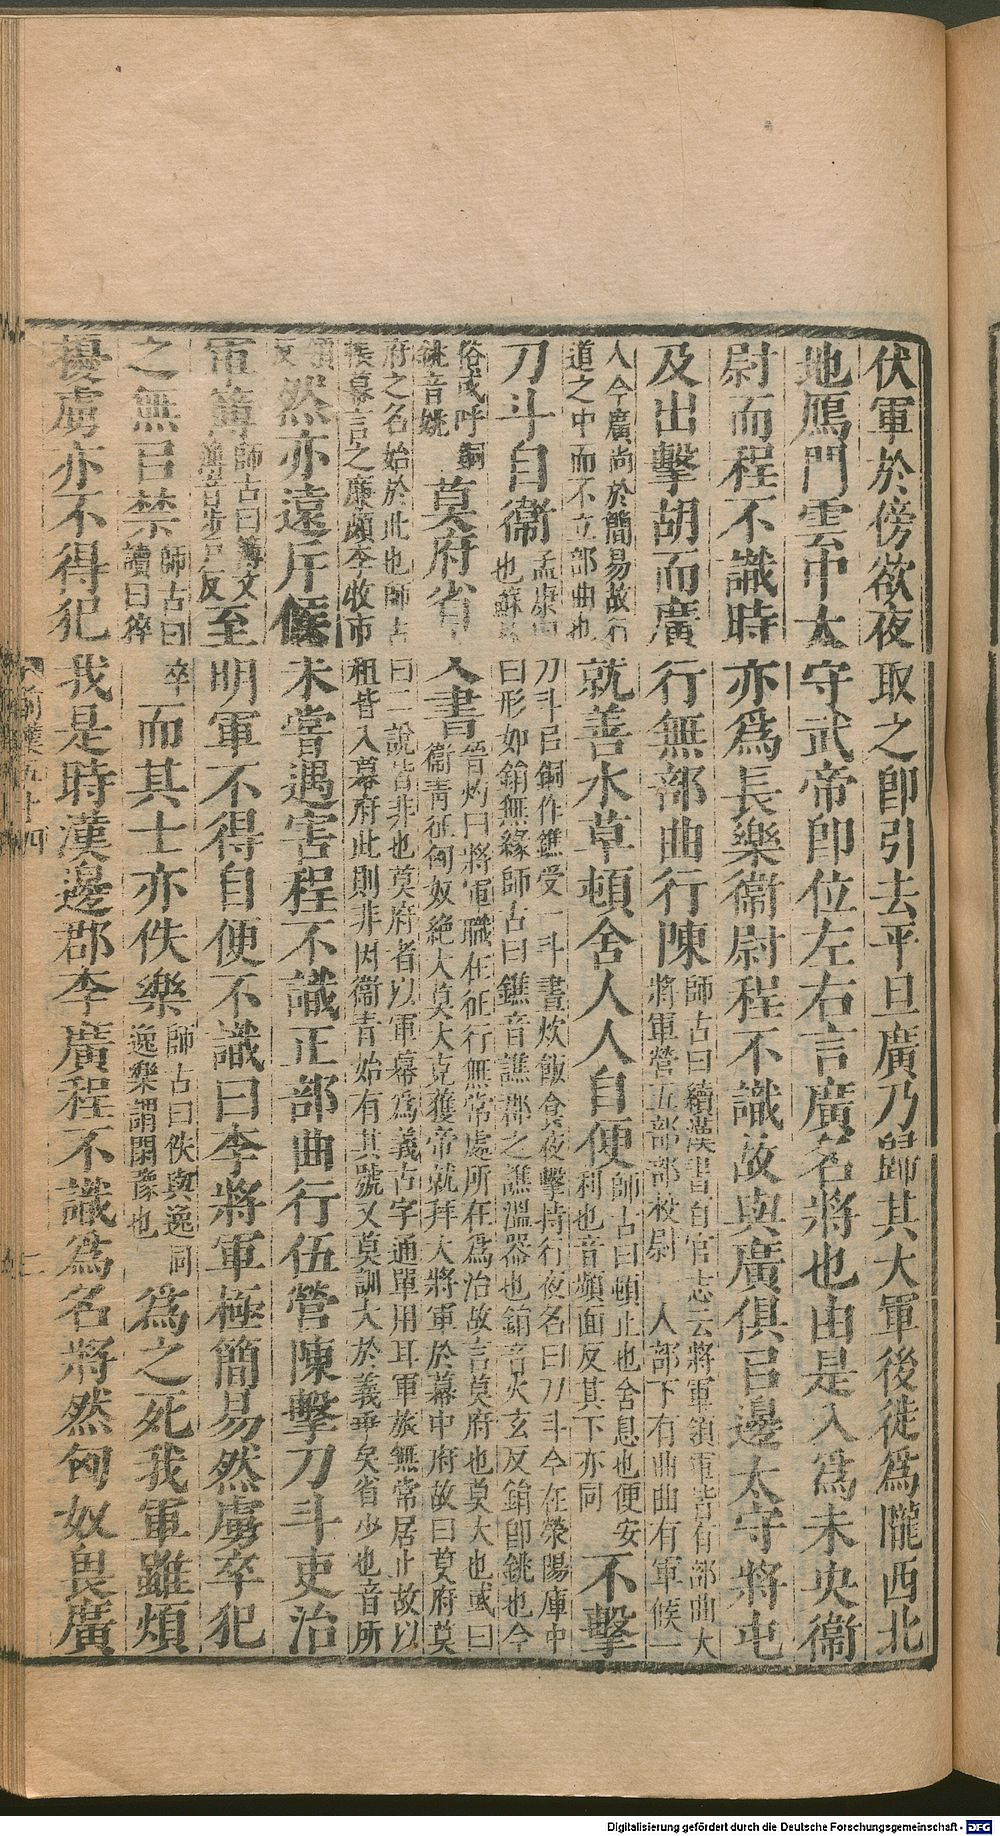 伏軍於傍欲夜取之卽引去平旦廣乃歸其大軍後徙爲隴西北
地鴈門雲中太守武帝卽位左右言廣名將也由是入爲未央衞
尉而程不識時亦爲長樂衞尉程不識故與廣俱㠯邊太守將屯
及出擊胡而廣行無部曲行陳師古曰續漢書百官志云將軍領軍皆有部曲大將軍營五部部校尉 人部下有曲曲有軍候一
人今廣尚於簡易故行道之中而不立部曲也就善水草頓舍人人自便師古曰頓止也舍息也便安利也音頻面反其下亦同不擊
刀斗自衞孟康曰刀斗㠯銅作鐎受一斗晝炊飯食夜擊持行夜名曰刀斗今在滎陽庫中也蘇林曰形如鋗無緣師古曰鐎音譙郡之譙溫器也鋗音火玄反鋗卽銚也今
俗或呼銅銚音姚莫府省文書晉灼曰將軍職在征行無常處所在爲治故言莫府也莫大也或曰衞青征匈奴絶大莫大克獲帝就拜大將軍於幕中府故曰莫府莫
府之名始於此也師古曰二說皆非也莫府者以軍幕爲義古字通單用耳軍旅無常居止故以帳幕言之廉頗李牧市租皆入幕府此則非因衞青始有其號又莫訓大於義乖矣省少也音所
領反然亦遠斥候未嘗遇害程不識正部曲行伍營陳擊刀斗吏治
軍簿師古曰簿文簿音步戶反至明軍不得自便不識曰李將軍極簡易然虜卒犯
之無㠯禁師古曰卒讀曰猝而其士亦佚樂師古曰佚與逸同逸樂謂閑豫也爲之死我軍雖煩
擾虜亦不得犯我是時漢邊郡李廣程不識爲名將然匈奴畏廣
前漢五十四 二
Digitalisierung gefördert durch die Deutsche Forschungsgemeinschaft - DFG